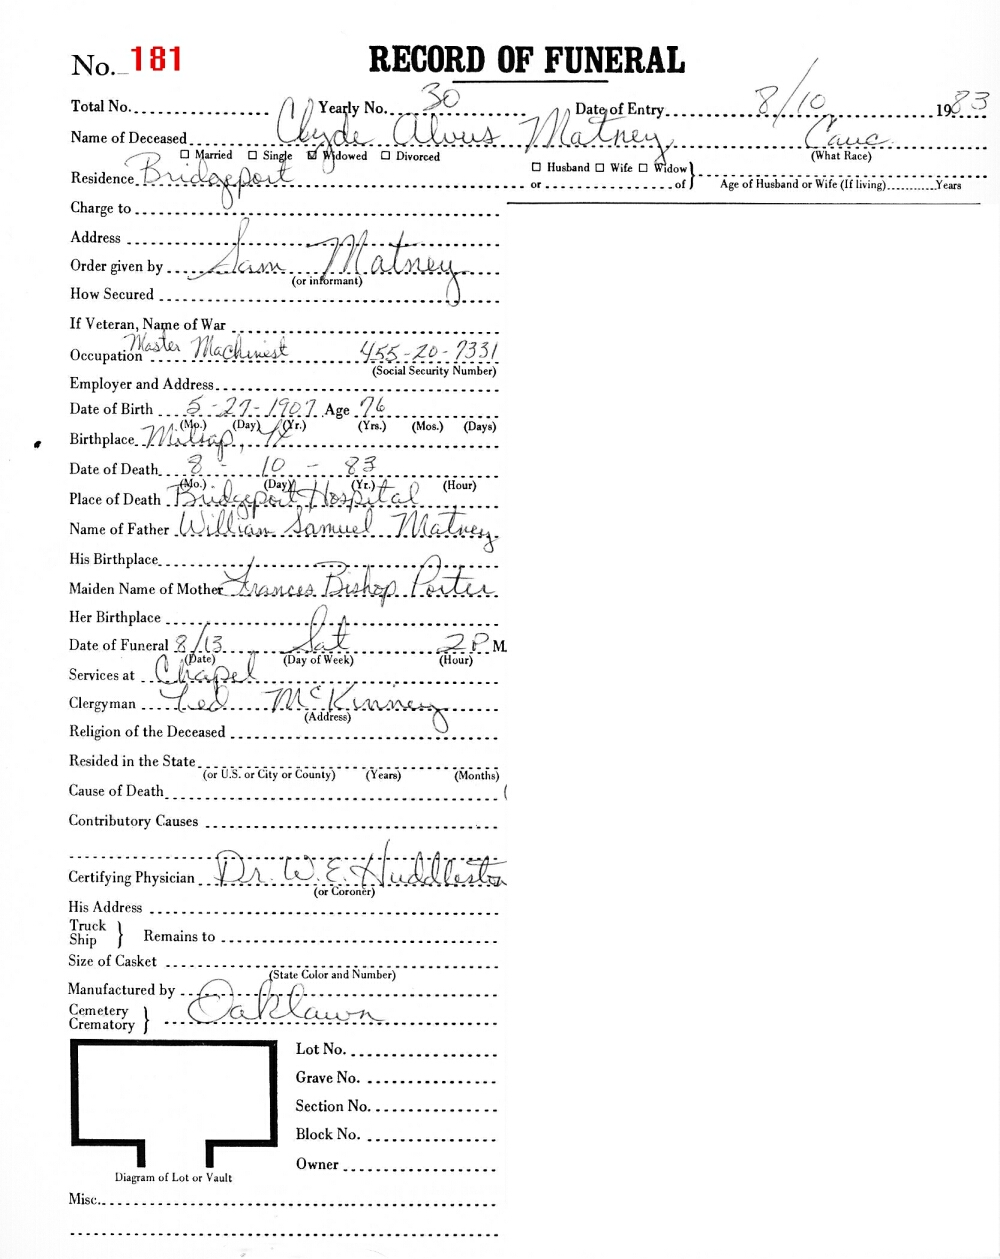 No. 181 RECORD OF FUNERAL
Total No. Yearly No. 30 Date of Entry 8/10 1983
Name of Deceased Clyde Alvus Matney Cauc.
☐ Married ☐ Single ☒ Widowed ☐ Divorced (What Race)
Residence Bridgeport ☐ Husband ☐ Wife ☐ Widow
or of Age of Husband or Wife (If living) Years
Charge to
Address
Order given by Sam Matney
(or informant)
How Secured
If Veteran, Name of War
Occupation Master Machinest 455-20-7331
(Social Security Number)
Employer and Address
Date of Birth 5-27-1907 Age 76
(Mo.) (Day) (Yr.) (Yrs.) (Mos.) (Days)
Birthplace Milsap, TX
Date of Death 8 - 10 - 83
(Mo.) (Day) (Yr.) (Hour)
Place of Death Bridgeport Hospital
Name of Father William Samuel Matney
His Birthplace
Maiden Name of Mother Frances Bishop Porter
Her Birthplace
Date of Funeral 8/13 Sat 2P M.
(Date) (Day of Week) (Hour)
Services at Chapel
Clergyman Ted McKinney
(Address)
Religion of the Deceased
Resided in the State
(or U.S. or City or County) (Years) (Months)
Cause of Death (
Contributory Causes
Certifying Physician Dr. W. E. Huddleston
(or Coroner)
His Address
Truck
Ship } Remains to
Size of Casket
(State Color and Number)
Manufactured by
Cemetery
Crematory } Oaklawn
Lot No.
Grave No.
Section No.
Block No.
Owner
Diagram of Lot or Vault
Misc.